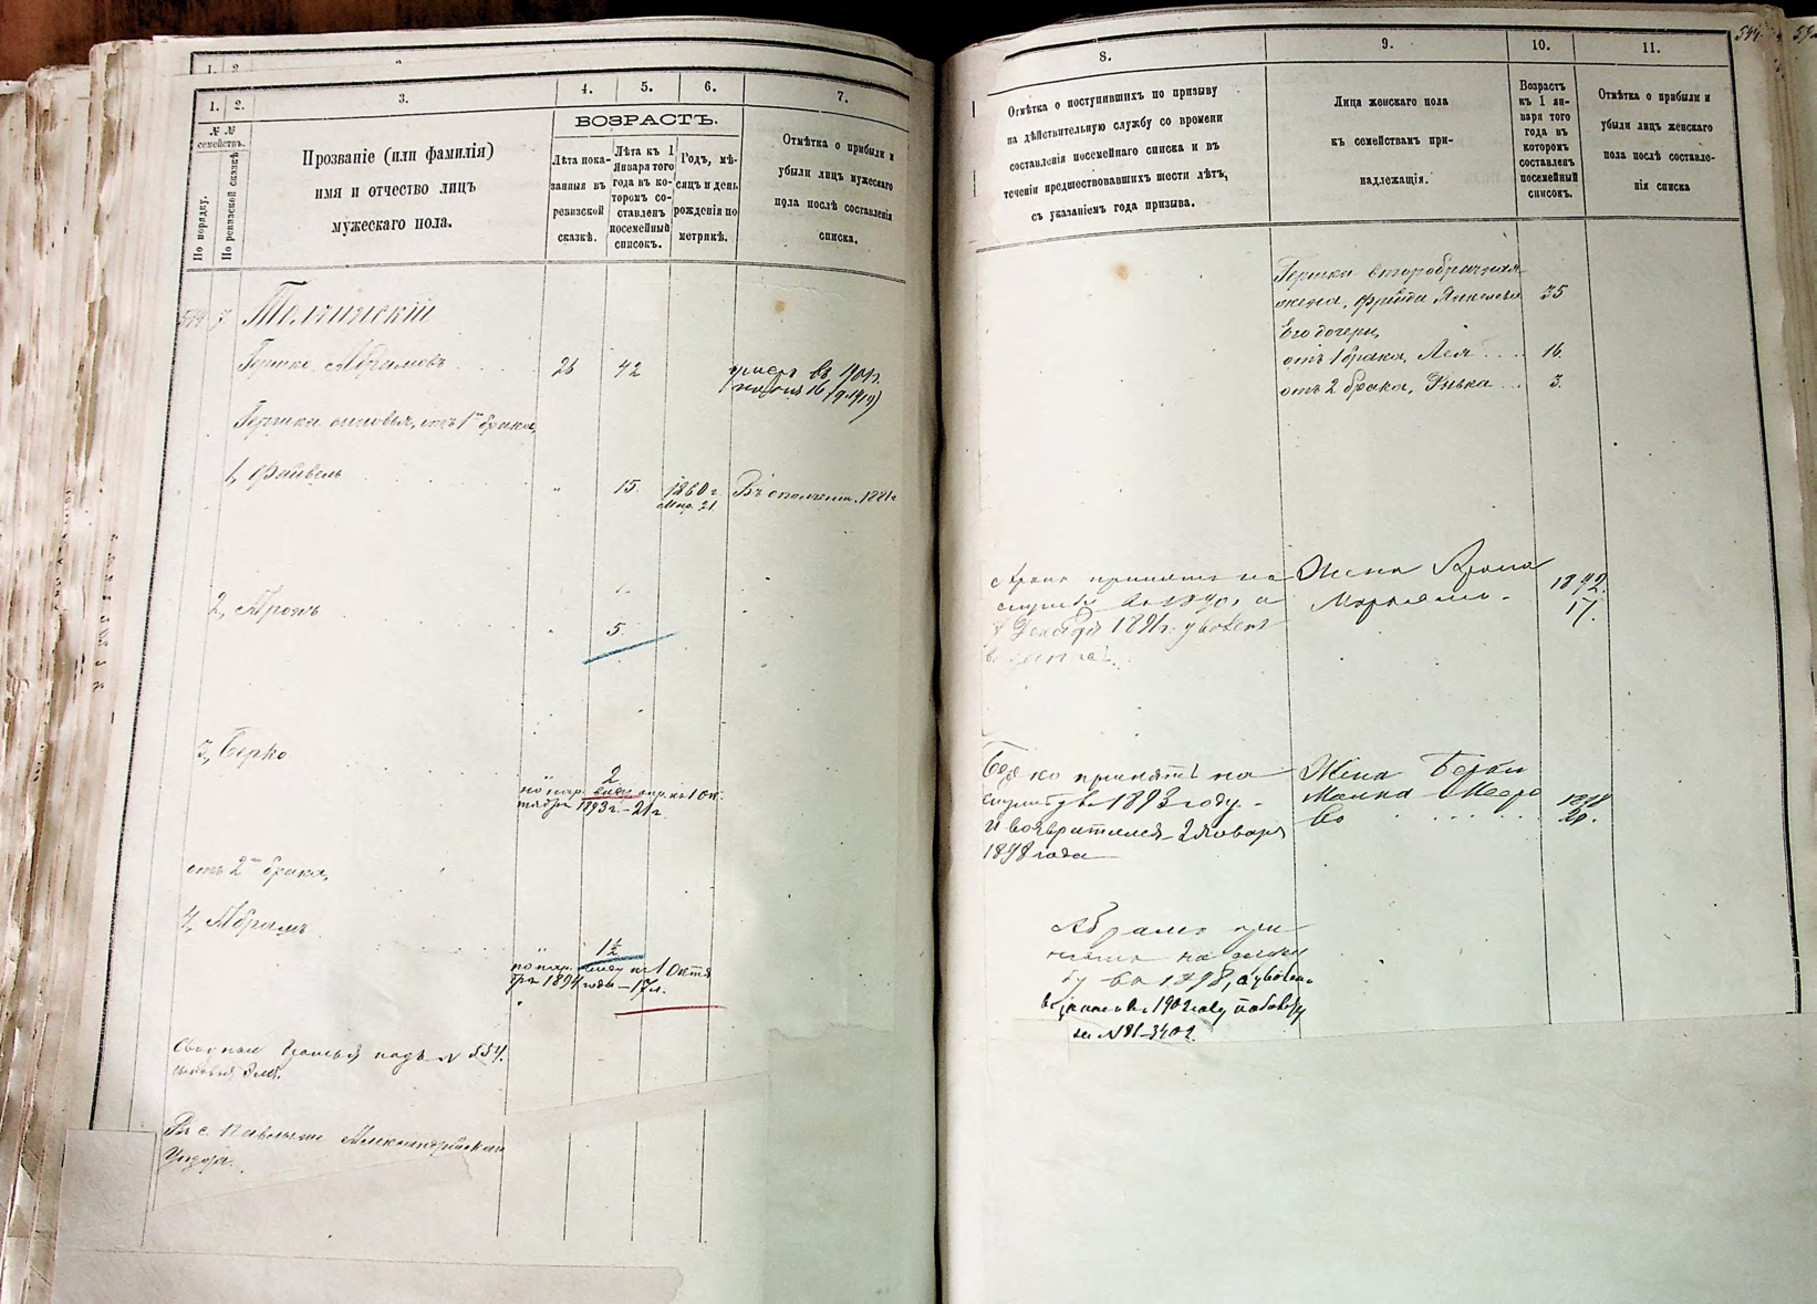 1. 2.
1. 2. 3. 4. 5. 6. 7.
№ №
семействъ.
По порядку.
По ревизской сказкѣ
Прозваніе (или фамилія)
имя и отчество лицъ
мужескаго пола.
ВОЗРАСТЪ.
Лѣта пока-
занныя въ
ревизской
сказкѣ.
Лѣта къ 1
Января того
года въ ко-
торомъ со-
ставленъ
посемейный
списокъ.
Годъ, мѣ-
сяцъ и день
рожденія по
метрикѣ.
Отмѣтка о прибыли и
убыли лицъ мужескаго
пола послѣ составленія
списка.
544 7 Толчинскій
Гершко Абрамовъ 26 42 умеръ въ 1904 г.
Гершки сыновья, отъ 1го брака,
1, Файвель 15. 1860 г. Въ ополчени. 1881 г
Мар. 21.
2, Аронъ
5.
3, Берко
2
по нар. виду опр. на 1 Ок-
тября 1893 г. – 21 г.
отъ 2го брака,
4, Абрамъ
1½
по нар. виду на 1 Октя
бря 1894 года – 17 л.
подъ № 554.
Въ с. Павлышѣ Александрійскаго
Уѣзда.
8. 9. 10. 11.
544.
Отмѣтка о поступившихъ по призыву
на дѣйствительную службу со времени
составленія посемейнаго списка и въ
теченіи предшествовавшихъ шести лѣтъ,
съ указаніемъ года призыва.
Лица женскаго пола
къ семействамъ при-
надлежащія.
Возрастъ
къ 1 ян-
варя того
года въ
которомъ
составленъ
посемейный
списокъ.
Отмѣтка о прибыли и
убыли лицъ женскаго
пола послѣ составле-
нія списка
Гершки второбрачная
жена, Фрейда Янкелева 35
Его дочери,
отъ 1 брака, Лея . . . . 16.
отъ 2 брака, Ривка . . . 3.
Аронъ принятъ на
службу въ 1890, а
Декабря 1891 г. уволенъ
въ запасъ.
Жена Арона
Марьямъ. 17.
Берко принятъ на
службу въ 1893 году –
и возвратился 2 Января
1898 года
Жена Берки
Малка Мееро
ва . . . . . . 1898
20.
Абрамъ при-
нятъ на служ
бу въ 1898, а уволен
въ запасъ въ 1902 году по
за № 81–3402.